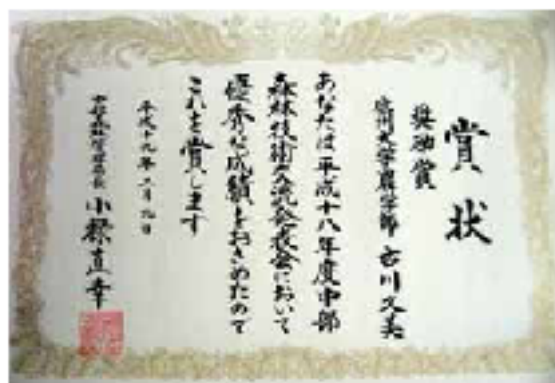 賞状
奨励賞
大学農学部 古川文美
あなたは平成十八年度中部
森林技術交流発表会において
優秀な成績をおさめたので
これを賞します
平成十九年二月九日
中部森林管理局長 小 直幸